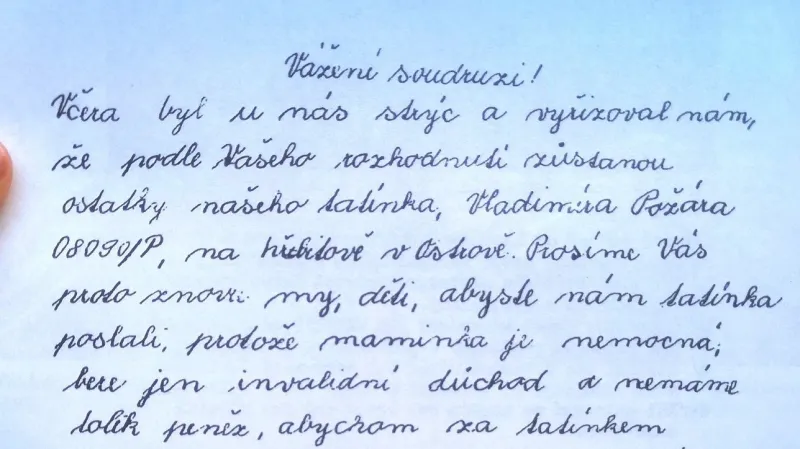 Vážení soudruzi!
Včera byl u nás strýc a vyřizoval nám,
že podle Vašeho rozhodnutí zůstanou
ostatky našeho tatínka, Vladimíra Požára
08090/P, na hřbitově v Ostrově. Prosíme Vás
proto znovu my, děti, abyste nám tatínka
poslali, protože maminka je nemocná,
bere jen invalidní důchod a nemáme
tolik peněz, abychom za tatínkem